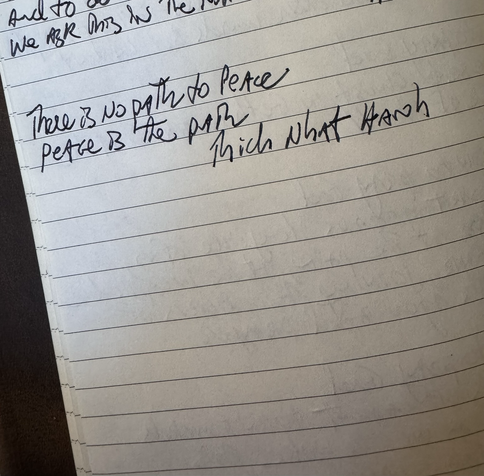 And to
We ask this in the
There is no path to peace
peace is the path
Thich Nhat Hanh